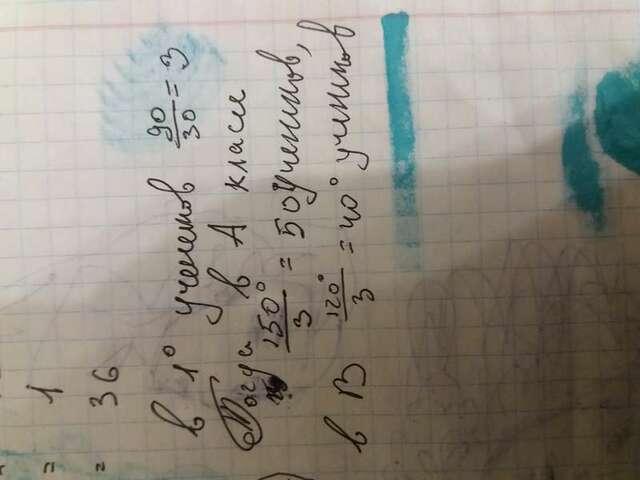 = 1
= 36
в 1° учеников 90/30 = 3
Тогда в А классе
150°/3 = 50 учеников,
в В 120°/3 = 40° учеников